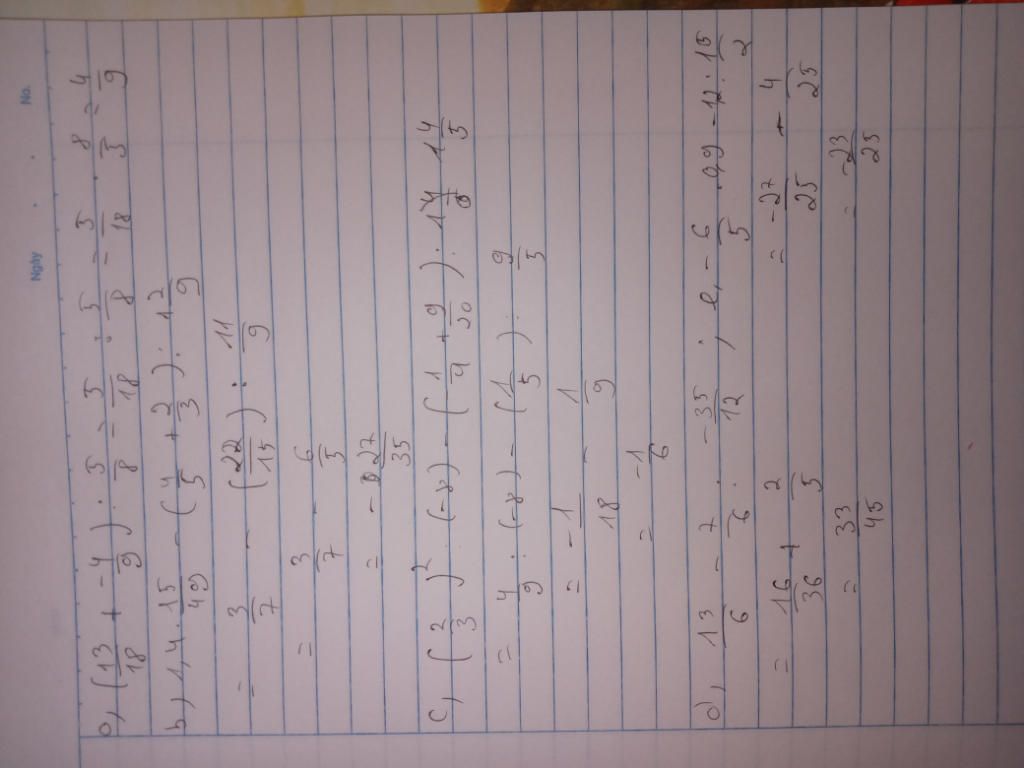 Ngày . . No.
a, (13/18 + -4/9) : 5/8 = 5/18 : 5/8 = 5/18 . 8/5 = 4/9
b, 1,4 . 15/49 - (4/5 + 2/3) : 1 2/9
= 3/7 - (22/15) : 11/9
= 3/7 - 6/5
= - 27/35
c, (2/3)² : (-8) - (1/4 + 9/20) :
= 4/9 : (-8) - (1/5) : 9/5
= -1/18 - 1/9
= -1/6
d, 13/6 - 7/6 . -35/12 ; e, - 6/5 . 99 - 12 : 15/2
= 16/36 + 2/5 = -27/25 + 4/25
= 33/45 = -23/25